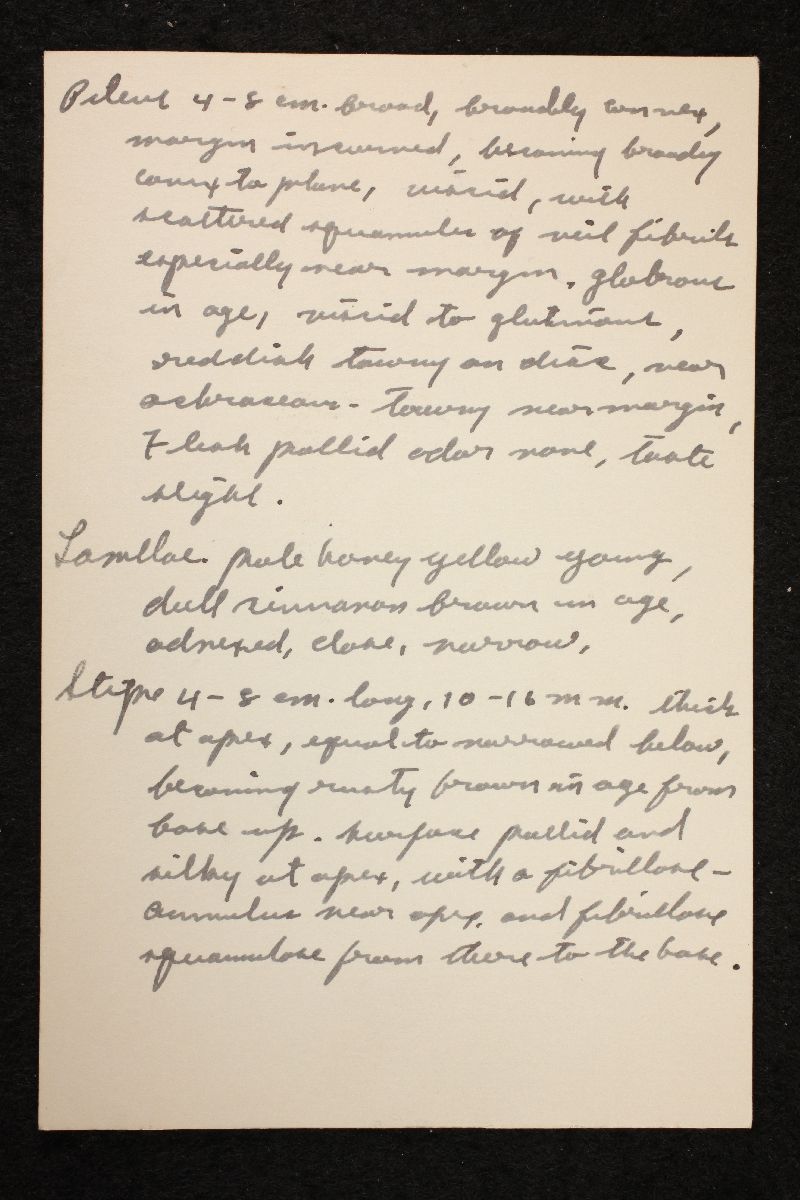 Pileus 4-8 cm. broad, broadly convex,
margin incurved, becoming broadly
convex to plane, viscid, with
scattered squamules of veil fibrils
especially near margin, glabrous
in age, viscid to glutinous,
reddish tawny on disc, near
ochraceous-tawny near margin,
Flesh pallid odor none, taste
slight.
Lamellae. pale honey yellow young,
dull cinnamon brown in age,
adnexed, close, narrow.
Stipe 4-8 cm. long, 10-16 mm. thick
at apex, equal to narrowed below,
becoming rusty brown in age from
base up. surface pallid and
silky at apex, with a fibrillose-
annulus near apex. and fibrillose
squamulose from there to the base.